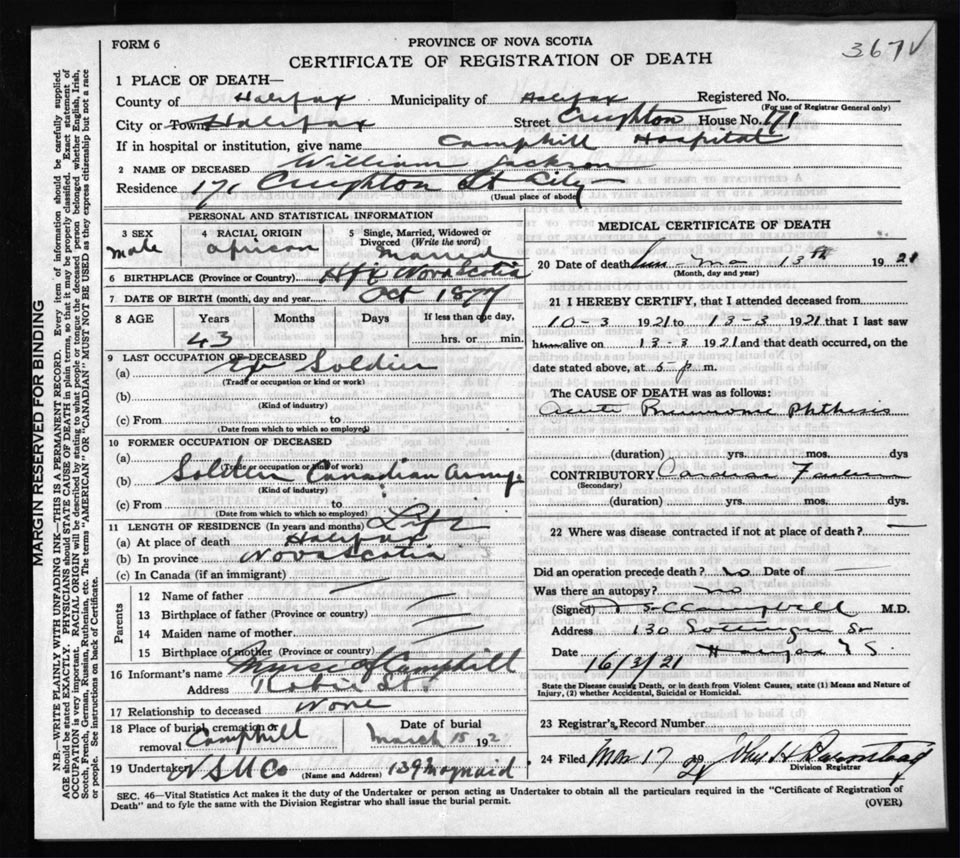 FORM 6
PROVINCE OF NOVA SCOTIA
367
CERTIFICATE OF REGISTRATION OF DEATH
MARGIN RESERVED FOR BINDING
N.B.—WRITE PLAINLY WITH UNFADING INK—THIS IS A PERMANENT RECORD. Every item of information should be carefully supplied.
AGE should be stated EXACTLY. PHYSICIANS should STATE CAUSE OF DEATH in plain terms, so that it may be properly classified. Exact statement of
OCCUPATION is very important. RACIAL ORIGIN will be described by stating to what people or tongue the deceased person belonged whether English, Irish,
Scotch, French, German, Russian, Ruthenian, etc. The terms "AMERICAN" OR "CANADIAN" MUST NOT BE USED as they express citizenship but not a race
or people. See instructions on back of Certificate.
1 PLACE OF DEATH—
County of Halifax Municipality of Halifax Registered No.
(For use of Registrar General only)
City or Town Halifax Street Creighton House No. 171
If in hospital or institution, give name Camphill Hospital
2 NAME OF DECEASED William Jackson
Residence 171 Creighton St City
(Usual place of abode)
PERSONAL AND STATISTICAL INFORMATION
3 SEX male
4 RACIAL ORIGIN african
5 Single, Married, Widowed or
Divorced (Write the word) Married
6 BIRTHPLACE (Province or Country) Hfx Nova Scotia
7 DATE OF BIRTH (month, day and year) Oct 1877
8 AGE Years Months Days If less than one day,
43 hrs. or min.
9 LAST OCCUPATION OF DECEASED
(a) Ex Soldier
(Trade or occupation or kind or work)
(b)
(Kind of industry)
(c) From to
(Date from which to which so employed)
10 FORMER OCCUPATION OF DECEASED
(a)
(Trade or occupation or kind of work)
(b) Soldier Canadian Army
(Kind of industry)
(c) From to
(Date from which to which so employed)
11 LENGTH OF RESIDENCE (In years and months) Life
(a) At place of death Halifax
(b) In province Nova Scotia
(c) In Canada (if an immigrant)
Parents
12 Name of father
13 Birthplace of father (Province or country)
14 Maiden name of mother
15 Birthplace of mother (Province or country)
16 Informant's name Nurse of Camphill
Address Robie St
17 Relationship to deceased None
18 Place of burial cremation or
removal Camphill
Date of burial
March 15 192
19 Undertaker N S U Co 139 Maynard
(Name and Address)
MEDICAL CERTIFICATE OF DEATH
20 Date of death 13th 1921
(Month, day and year)
21 I HEREBY CERTIFY, that I attended deceased from
10-3 1921 to 13-3 1921 that I last saw
him alive on 13-3 1921 and that death occurred, on the
date stated above, at 5 p m.
The CAUSE OF DEATH was as follows:
Acute Pneumonic Phthisis
(duration) yrs. mos. dys
CONTRIBUTORY Cardiac Failure
(Secondary)
(duration) yrs. mos. dys.
22 Where was disease contracted if not at place of death? —
Did an operation precede death? No Date of —
Was there an autopsy? No
(Signed) Campbell M.D.
Address 130 Gottingen St
Date 16/3/21 Halifax N S.
State the Disease causing Death, or in death from Violent Causes, state (1) Means and Nature of
Injury, (2) whether Accidental, Suicidal or Homicidal.
23 Registrar's Record Number
24 Filed Mar 17 21 John H Barnstead
Division Registrar
SEC. 46—Vital Statistics Act makes it the duty of the Undertaker or person acting as Undertaker to obtain all the particulars required in the "Certificate of Registration of
Death" and to fyle the same with the Division Registrar who shall issue the burial permit.
(OVER)